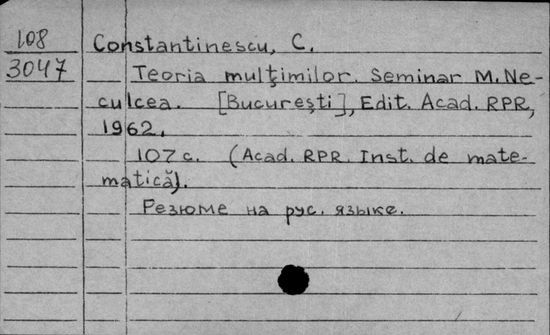 108
3047
Constantinescu, C.
Teoria mulţimilor. Seminar M. Ne-
culcea. [Bucureşti], Edit. Acad. RPR,
1962.
107 c. (Acad. RPR. Inst. de mate-
matică).
Резюме на рус. языке.